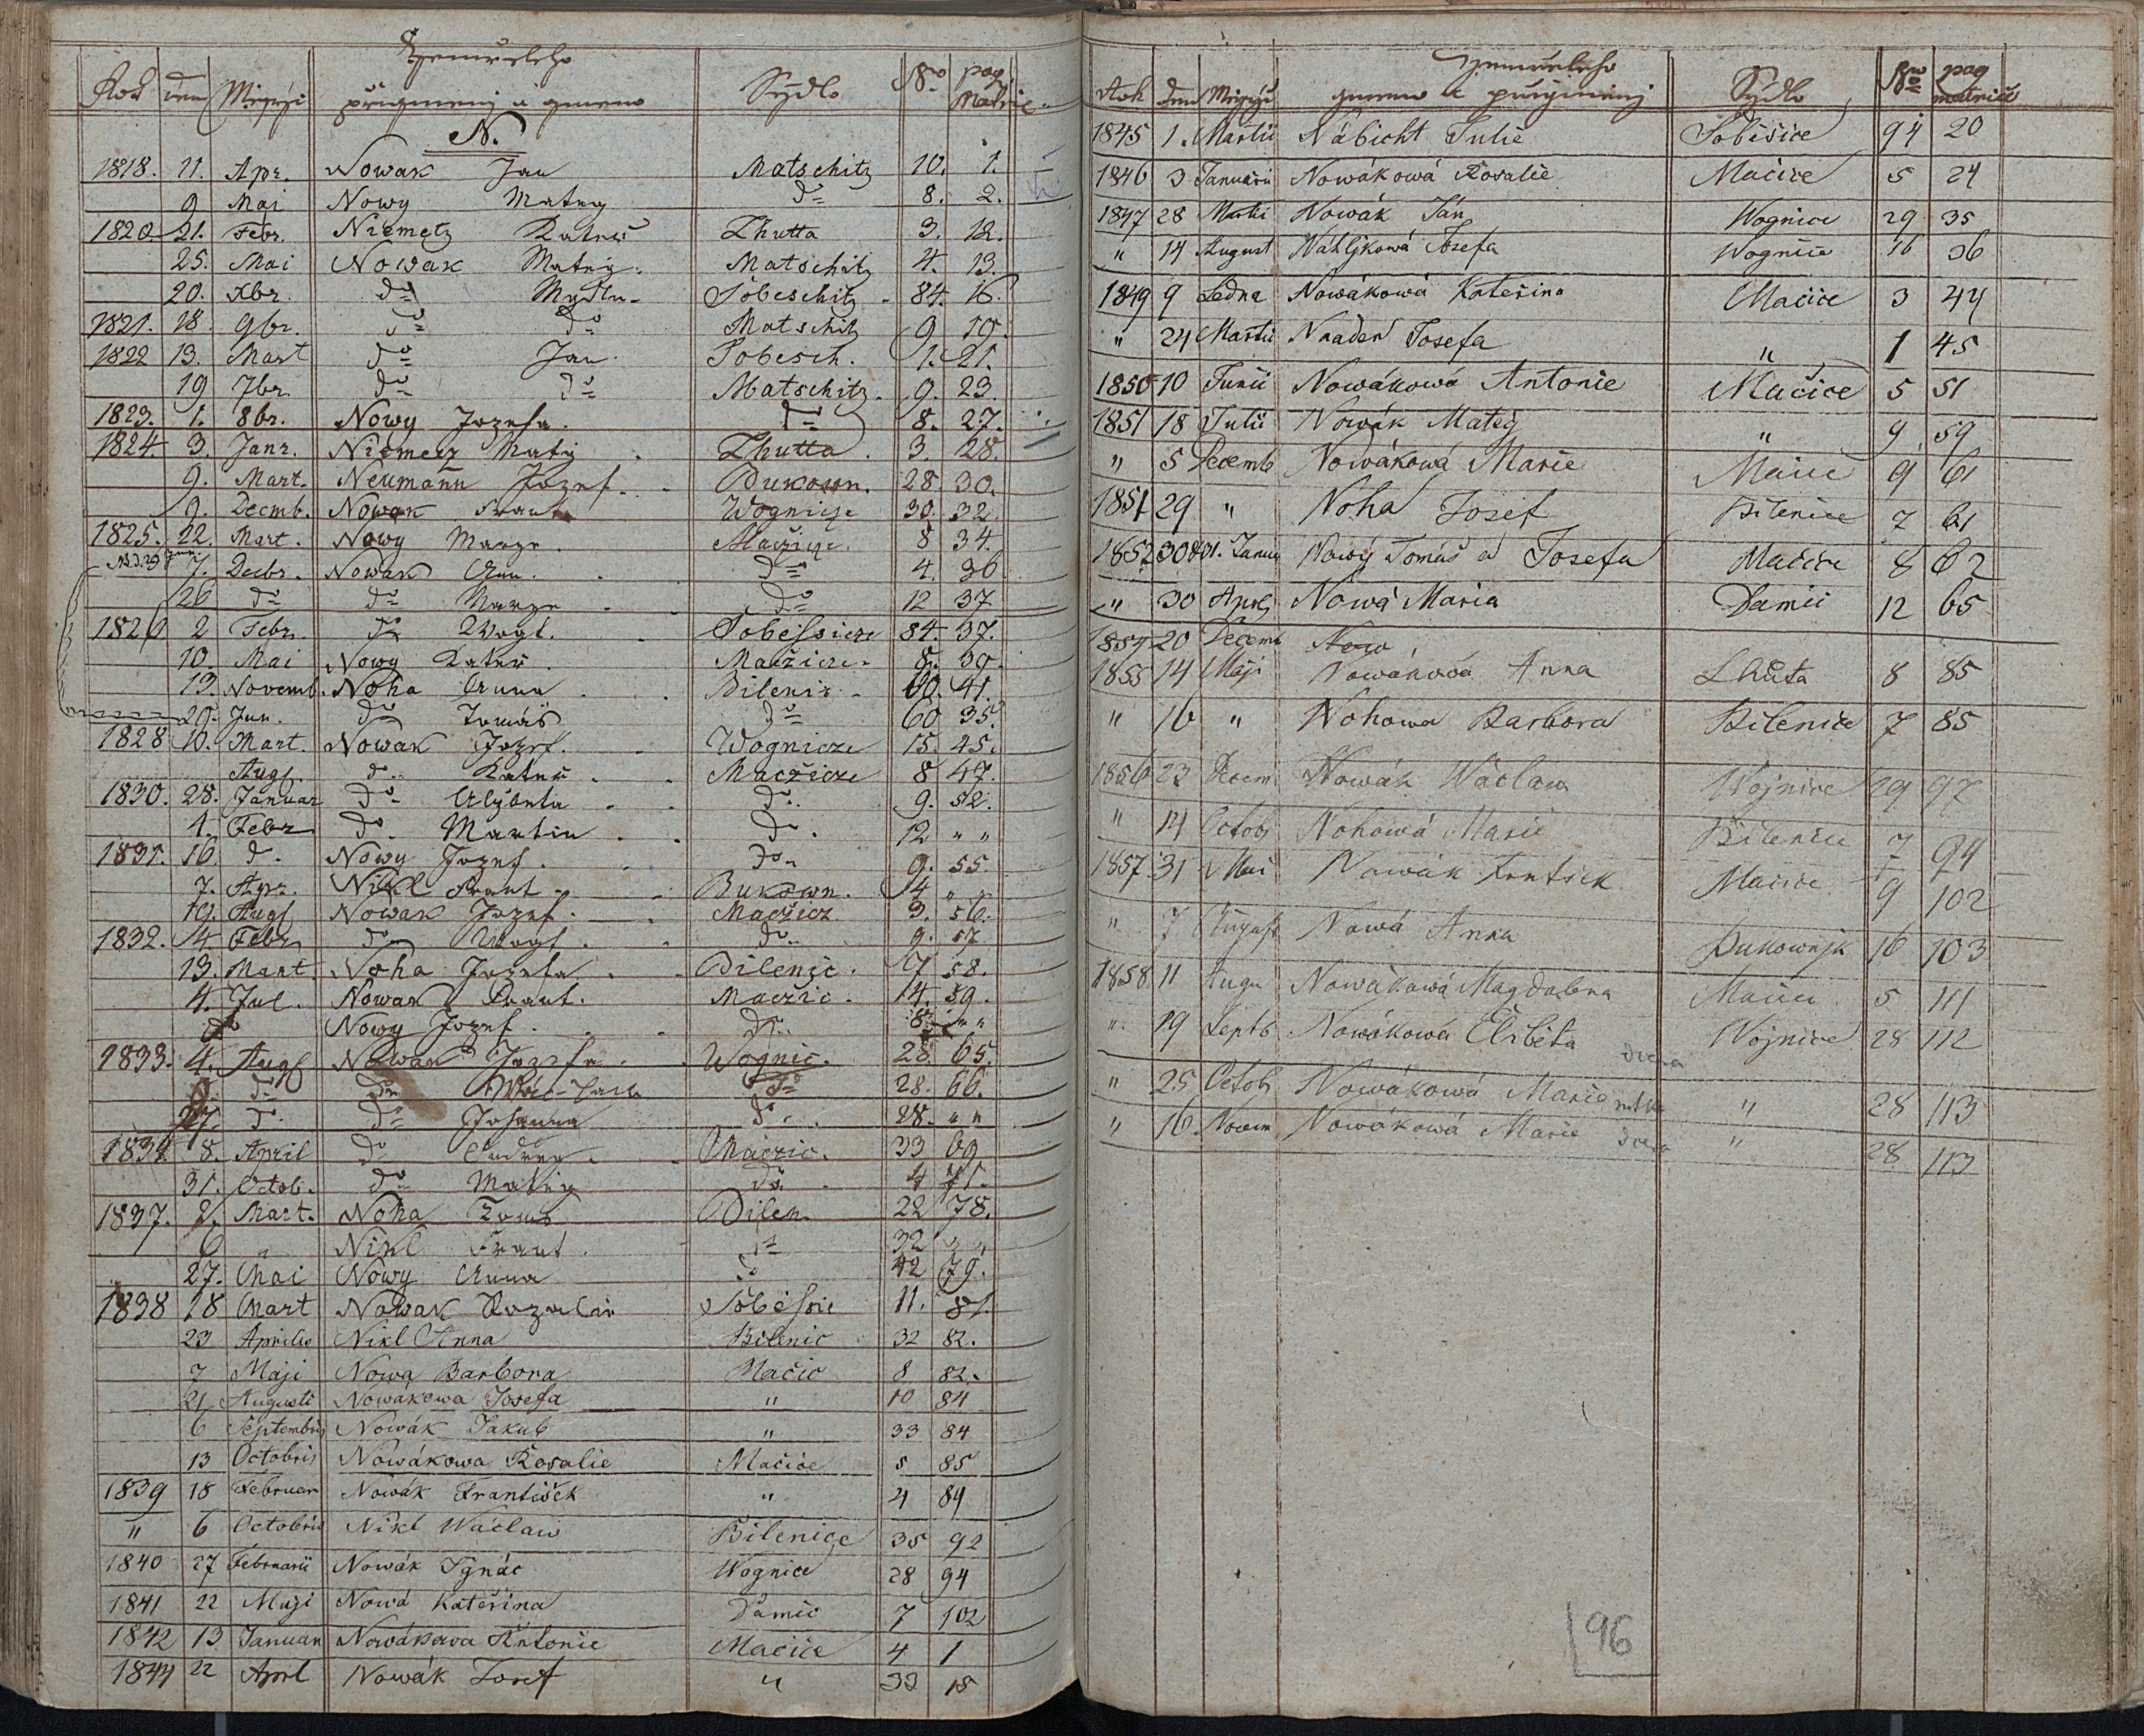 Zemřelého
Rok den Měsýc přigmenj a gmeno Sýdlo No pag Matric
N.
1818. 11. Apr. Nowak Jan Matschitz 10. 1.
9 Mai Nowy Mateg do 8. 2.
1820 21. Febr. Niemetz Kateř Lhutta 3. 12.
25. Mai Nowak Mateg. Matschitz 4. 13.
20. Xbr. do Madln Sobeschitz 84. 16.
1821. 18. 9br. do do Matschitz 9 19.
1822 13. Mart do Jan Sobesch. 1. 21.
19 7br. do do Matschitz. 9. 23.
1823. 1. 8br. Nowy Jozefa. do 8. 27.
1824 3. Janr. Niemetz Matěg Lhutta 3. 28.
9. Mart. Neumann Jozef. Bukown. 28. 30.
9. Decmb. Nowak Frant Wognicze 30. 32.
1825. 22. Mart. Nowy Marge Macžicze 8 34.
7. Decbr. Nowak Ann. do 4. 36
26 do do Marge do 12 37
1826 2 Febr. do Wogt. Sobessicze 84. 37.
10. Mai Nowy Kateř. Macžicze 8. 39.
13. Novemb. Noha Anna Bilenic 60. 41.
29. Jun. do Tomáš do 60 35.
1828 10. Mart. Nowak Jozef. Wognicze 15. 45.
Aug. do Kateř Maczicze 8 47.
1830. 28. Januar do Alžbeta do 9. 52.
4. Febr do Martin do 12 " "
1831. 16 d. Nowy Jozef. do 9. 55.
7. Apr. Nikl Frant Bukown. 14 " "
19. Aug Nowak Jozef. Maczicz 3. 56.
1832. 14. Febr do Wogt. do 9. 57
13. Mart. Noha Jozefa Bilenic. 17 58.
4. Jul. Nowak Frant. Maczic. 14. 59.
do Nowy Jozef. do 8. " "
1833. 4. Aug Nowak Jozefa Wognic. 28. 65.
9. do do do 28. 66.
27. do do Johanna do 28. " "
1834. 8. April do Ondreg Maczic. 33 69
31. Octob. do Mateg do 4 71.
1837. 2. Mart. Noha Tomš Bilen. 22 78.
6 " Nikl Frant. do 32 " "
27. Mai Nowy Anna do 42 79.
1838 18 Mart Nowak Rozalie Sobessic 11. 81.
23 Aprilis Nikl Anna Bilenic 32 82.
7 Maji Nowa Barbora Mačic 8 82.
21 Augusti Nowákowa Josefa " 10 84
6 Septembris Nowák Jakub " 33 84
13 Octobris Nowákowa Rosalie Mačice 5 85
1839 18 Februar Nowák František " 4 89
" 6 Octobris Nikl Wáclaw Bilenice 35 92
1840 27 Februarii Nowák Ignác Wognice 28 94
1841 22 Maji Nowá Kateřina Damic 7 102
1842 13 Januar Nowákowa Antonie Mačice 4 1
1844 22 Aprl Nowák Josef " 33 18
Zemřelého
Rok den Měsýc gmeno a přigmenj Sýdlo No pag matrice
1845 1. Martii Nábicht Julie Sobišice 94 20
1846 3 Januarii Nowákowá Rosalie Mačice 5 24
1847 28 Martii Nowák Ján Wognice 29 35
" 14 August Náhljkowá Josefa Wognice 16 36
1849 9 Ledna Nowákowá Kateřina Mačice 3 44
" 24 Martii Naaden Josefa " 1 45
1850 10 Junii Nowákowá Antonie Mačice 5 51
1851 18 Julii Nowák Matěg " 9 59
" 5 Decemb Nowáková Marie Mačice 9 61
1851 29 " Noha Josef Bilenice 7 61
1852 30 & 31. Januar Nowý Tomáš a Josefa Mačice 8 62
" 30 April Nowá Maria Damic 12 65
1854 20 Decemb Now
1855 14 Máji Nowáková Anna Lhůta 8 85
" 16 " Nohowa Barbora Bilenice 7 85
1856 23 Decem Nowák Wáclaw Wojnice 29 97
" 14 Octob Nohowá Marie Bilenice 7 94
1857 31 Mai Nowák Frntišek Mačice 9 102
" 7 August Nowá Anna Bukownjk 16 103
1858 11 Augu Nowákowá Magdalena Mačice 5 111
" 19 Septb Nowákowá Elsběta dcera Wojnice 28 112
" 25 Octob Nowákowá Marie matka " 28 113
" 16 Novem Nowákowá Marie dcera " 28 113
96